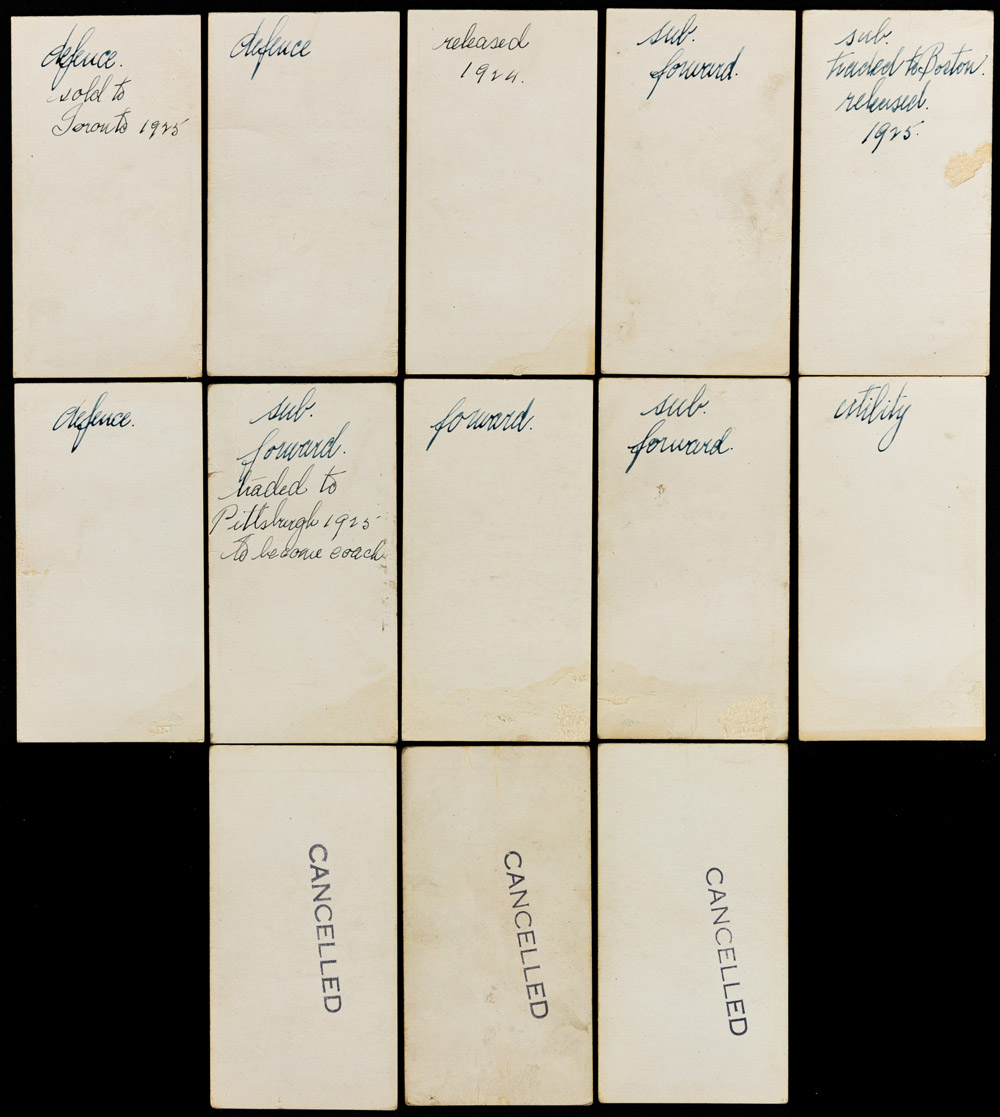 defence.
sold to
Toronto 1925
defence
released
1924.
sub.
forward.
sub.
traded to Boston.
released.
1925.
defence.
sub.
forward.
traded to
Pittsburgh 1925
to become coach
forward.
sub.
forward.
utility
CANCELLED
CANCELLED
CANCELLED